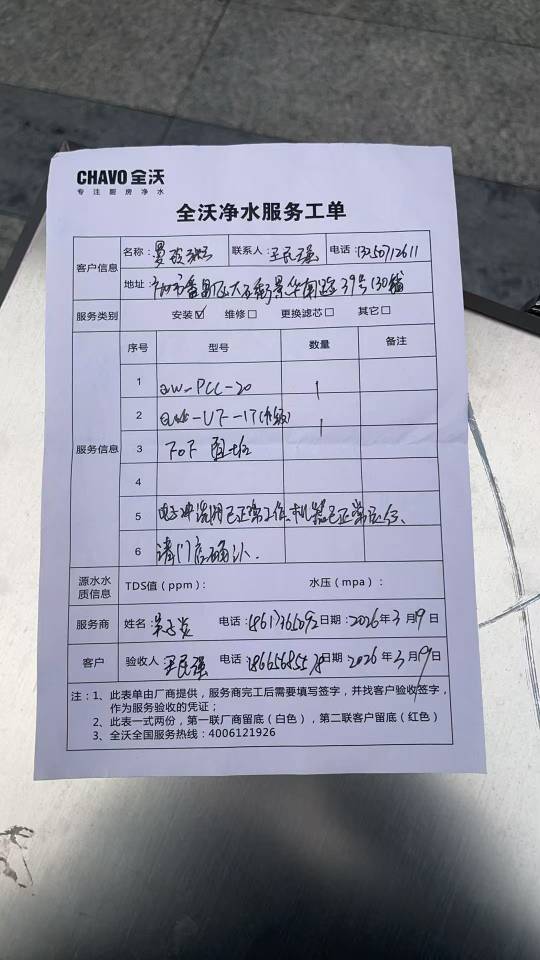 CHAVO全沃
专注厨房净水
全沃净水服务工单
客户信息 名称： 联系人：王民强 电话：13250712611
地址：市番禺区大石街景华南路39号130铺
服务类别 安装☑ 维修□ 更换滤芯□ 其它□
服务信息 序号 型号 数量 备注
1 QW-PCC-20 1
2 -UF-1T 1
3 FOF
4
5 电子冲洗阀已正常工作、机器已正常运行、
6 请门店确认.
源水水质信息 TDS值（ppm）： 水压（mpa）：
服务商 姓名： 电话：18617365092 日期：2026年3月19日
客户 验收人 王民强 电话：186656855 日期：2026年3月19日
注：1、此表单由厂商提供，服务商完工后需要填写签字，并找客户验收签字，
作为服务验收的凭证；
2、此表一式两份，第一联厂商留底（白色），第二联客户留底（红色）
3、全沃全国服务热线：4006121926